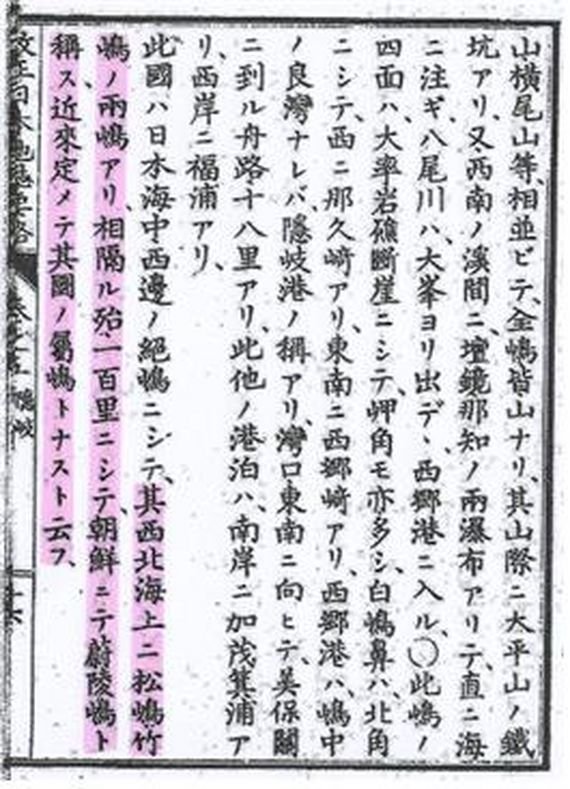 山橫尾山等、相並ビテ、全嶋皆山ナリ、其山際ニ大平山ノ鐵
坑アリ、又西南ノ溪間ニ、壇鏡那知ノ兩瀑布アリテ、直ニ海
ニ注ギ、八尾川ハ、大峯ヨリ出デヽ、西鄉港ニ入ル、〇此嶋ノ
四面ハ、大率岩礁斷崖ニシテ、岬角モ亦多シ、白嶋鼻ハ、北角
ニシテ、西ニ那久崎アリ、東南ニ西鄉崎アリ、西鄉港ハ、嶋中
ノ良灣ナレバ、隱岐港ノ稱アリ、灣口東南ニ向ヒテ、美保關
ニ到ル舟路十八里アリ、此他ノ港泊ハ、南岸ニ加茂箕浦ア
リ、西岸ニ福浦アリ、
此國ハ日本海中西邊ノ絕嶋ニシテ、其西北海上ニ松嶋竹
嶋ノ兩嶋アリ、相隔ル殆一百里ニシテ、朝鮮ニテ蔚陵嶋ト
稱ス、近來定メテ其國ノ屬嶋トナスト云フ、